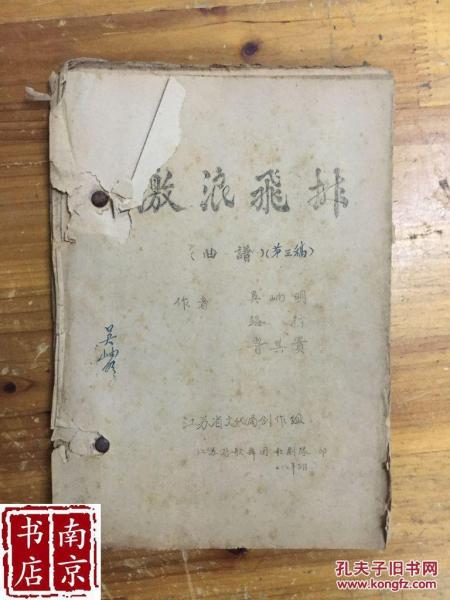 激浪飛排
(曲譜)(第三稿)
作者 吳岫明
路行
曹其貴
吳岫明
江苏省文化局创作组
江苏省歌舞团歌剧隊 印
南京
书店
孔夫子旧书网
www.kongfz.com